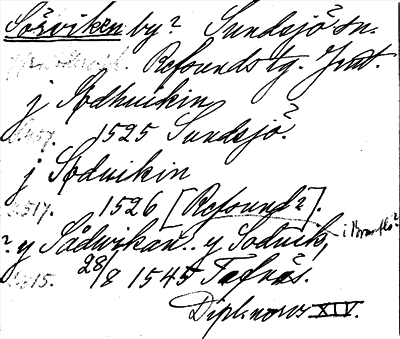 Sörviken by? Sundsjö sn.
Refsunds tg. Jmt.
j Sodhuikin
1525 Sundsjö.
j Soduikin
1526 [Refsund?].
? y Sådwikan.. y Soduik, i Brunflo?
28/8 1545 Tafnäs.
Dipl. norv XIV.